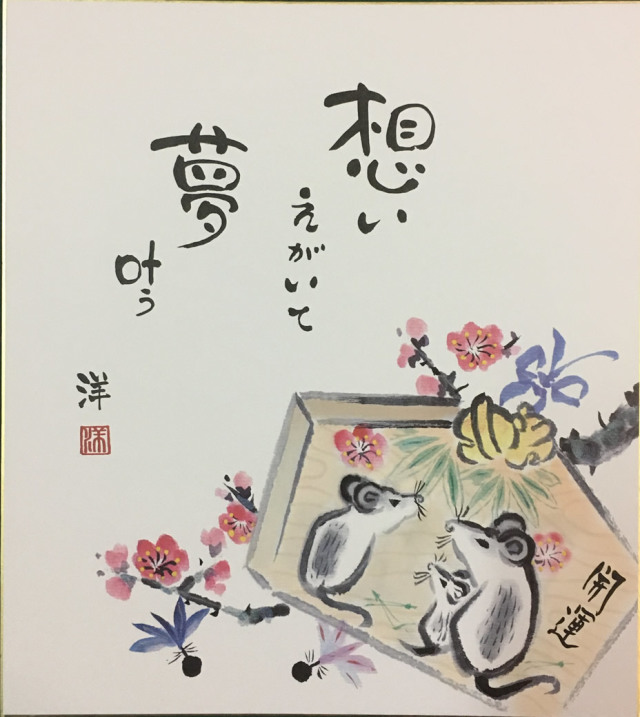 想い
えがいて
夢
叶う
洋
開運